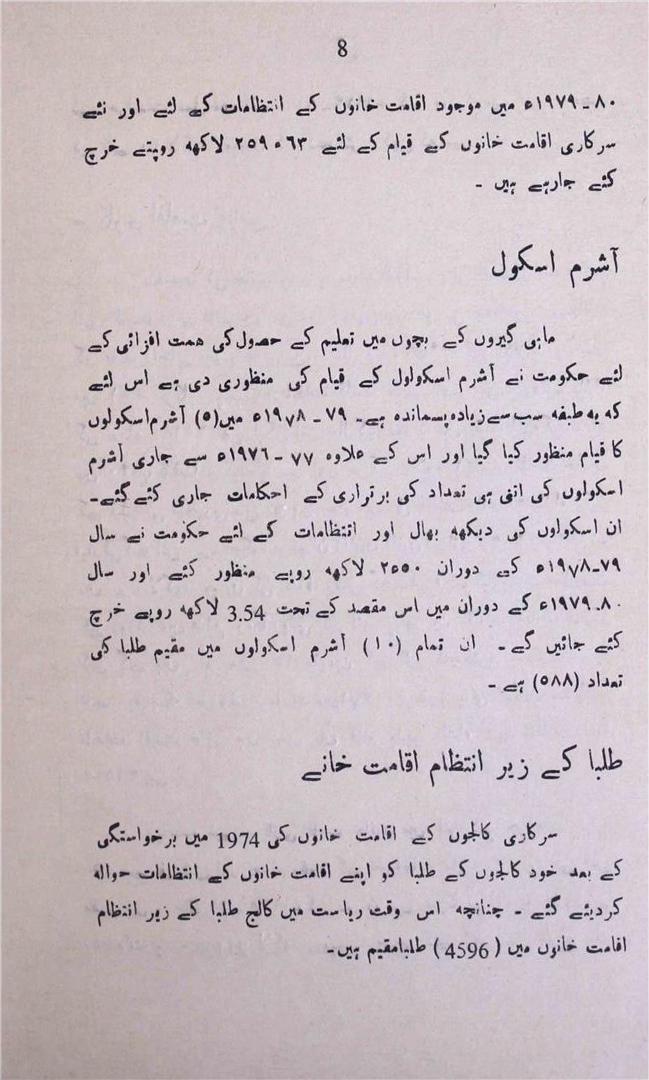 8
۱۹۷۹ـ۸۰ء میں موجود اقامت خانوں کے انتظامات کے لئے اور نئے
سرکاری اقامت خانوں کے قیام کے لئے ۲۵۹ء۶۳ لاکھ روپئے خرچ
کئے جارہے ہیں ۔
آشرم اسکول
ماہی گیروں کے بچوں میں تعلیم کے حصول کی ہمت افزائی کے
لئے حکومت نے آشرم اسکولوں کے قیام کی منظوری دی ہے اس لئے
کہ یہ طبقہ سب سے زیادہ پسماندہ ہے۔ ۷۹ ـ ۱۹۷۸ء میں (۵) آشرم اسکولوں
کا قیام منظور کیا گیا اور اس کے علاوہ ۷۷ ـ ۱۹۷۶ء سے جاری آشرم
اسکولوں کی اتنی ہی تعداد کی برقراری کے احکامات جاری کئے گئے۔
ان اسکولوں کی دیکھ بھال اور انتظامات کے لئے حکومت نے سال
۷۹ـ۱۹۷۸ء کے دوران ۲ء۵۰ لاکھ روپے منظور کئے اور سال
۸۰ـ۱۹۷۹ء کے دوران میں اس مقصد کے تحت 3.54 لاکھ روپے خرچ
کئے جائیں گے ۔ ان تمام (۱۰) آشرم اسکولوں میں مقیم طلبا کی
تعداد (۵۸۸) ہے ۔
طلبا کے زیر انتظام اقامت خانے
سرکاری کالجوں کے اقامت خانوں کی 1974 میں برخواستگی
کے بعد خود کالجوں کے طلبا کو اپنے اقامت خانوں کے انتظامات حوالہ
کردیئے گئے ۔ چنانچہ اس وقت ریاست میں کالج طلبا کے زیر انتظام
اقامت خانوں میں (4596) طلبا مقیم ہیں۔